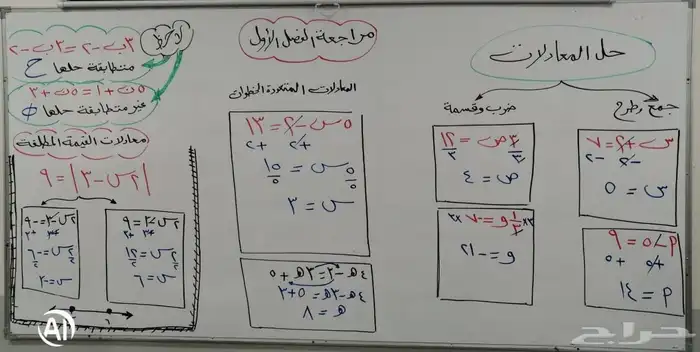 مراجعة الفصل الأول
حل المعادلات
جمع وطرح
س + ٢ = ٧
-٢ -٢
س = ٥
م - ٥ = ٩
+٥ +٥
م = ١٤
ضرب وقسمة
٣ص = ١٢
٣ ٣
ص = ٤
٣× ١/٣ و = -٧ ×٣
و = -٢١
المعادلات المتعددة الخطوات
٥س - ٢ = ١٣
+٢ +٢
٥س = ١٥
٥ ٥
س = ٣
٤هـ - ٣ = ٣هـ + ٥
٤هـ - ٣هـ = ٥ + ٣
هـ = ٨
لاحظ
٣ب - ٢ = ٣ب - ٢
متطابقة حلها ح
٥ن + ١ = ٥ن + ٣
غير متطابقة حلها ∅
معادلات القيمة المطلقة
|٢س - ٣| = ٩
٢س - ٣ = ٩
+٣ +٣
٢س = ١٢
٢ ٢
س = ٦
٢س - ٣ = -٩
+٣ +٣
٢س = -٦
٢ ٢
س = -٣
٦
AI
حراج